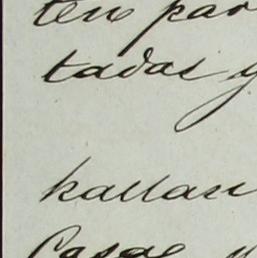 ten par
tadas y
hallan
Casas